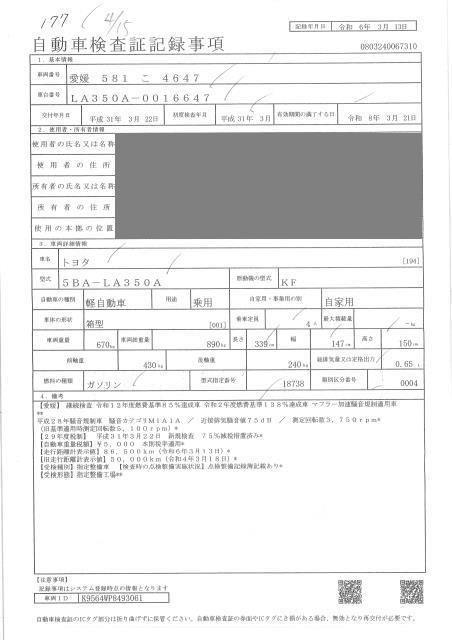 177 ( 4/15
記録年月日 令和 6年 3月 13日
自動車検査証記録事項
0803240067310
1. 基本情報
車両番号 愛媛 581 こ 4647
車台番号 LA350A-0016647
交付年月日 平成31年 3月 22日 初度検査年月 平成31年 3月 有効期間の満了する日 令和 8年 3月 21日
2. 使用者・所有者情報
使用者の氏名又は名称
使用者の住所
所有者の氏名又は名称
所有者の住所
使用の本拠の位置
3. 車両詳細情報
車名 トヨタ [194]
型式 5BA-LA350A 原動機の型式 KF
自動車の種別 軽自動車 用途 乗用 自家用・事業用の別 自家用
車体の形状 箱型 [001] 乗車定員 4人 最大積載量 -kg
車両重量 670kg 車両総重量 890kg 長さ 339cm 幅 147cm 高さ 150cm
前軸重 430kg 後軸重 240kg 総排気量又は定格出力 0.65 L
燃料の種類 ガソリン 型式指定番号 18738 類別区分番号 0004
4. 備考
【愛媛】 継続検査 令和12年度燃費基準85%達成車 令和2年度燃費基準138%達成車 マフラー加速騒音規制適用車
**
平成28年騒音規制車 騒音カテゴリM1A1A / 近接排気騒音値75dB / 測定回転数3,750rpm*
(旧基準適用時測定回転数5,100rpm)*
【29年度税制】 平成31年3月22日 新規検査 75%減税措置済み*
【自動車重量税額】¥5,000 本則税率適用*
【走行距離計表示値】86,500km(令和6年3月13日)
【旧走行距離計表示値】50,000km(令和4年3月18日)*
【受検種別】指定整備車 【検査時の点検整備実施状況】点検整備記録簿記載あり*
【受検形態】指定整備工場**
【注意事項】
記録事項はシステム登録時点の情報となります
車両ID: K9564WP8493061
自動車検査証のICタグ部分は折り曲げずに保管ください。自動車検査証の券面やICタグにき損がある場合、無効となり再交付が必要です。